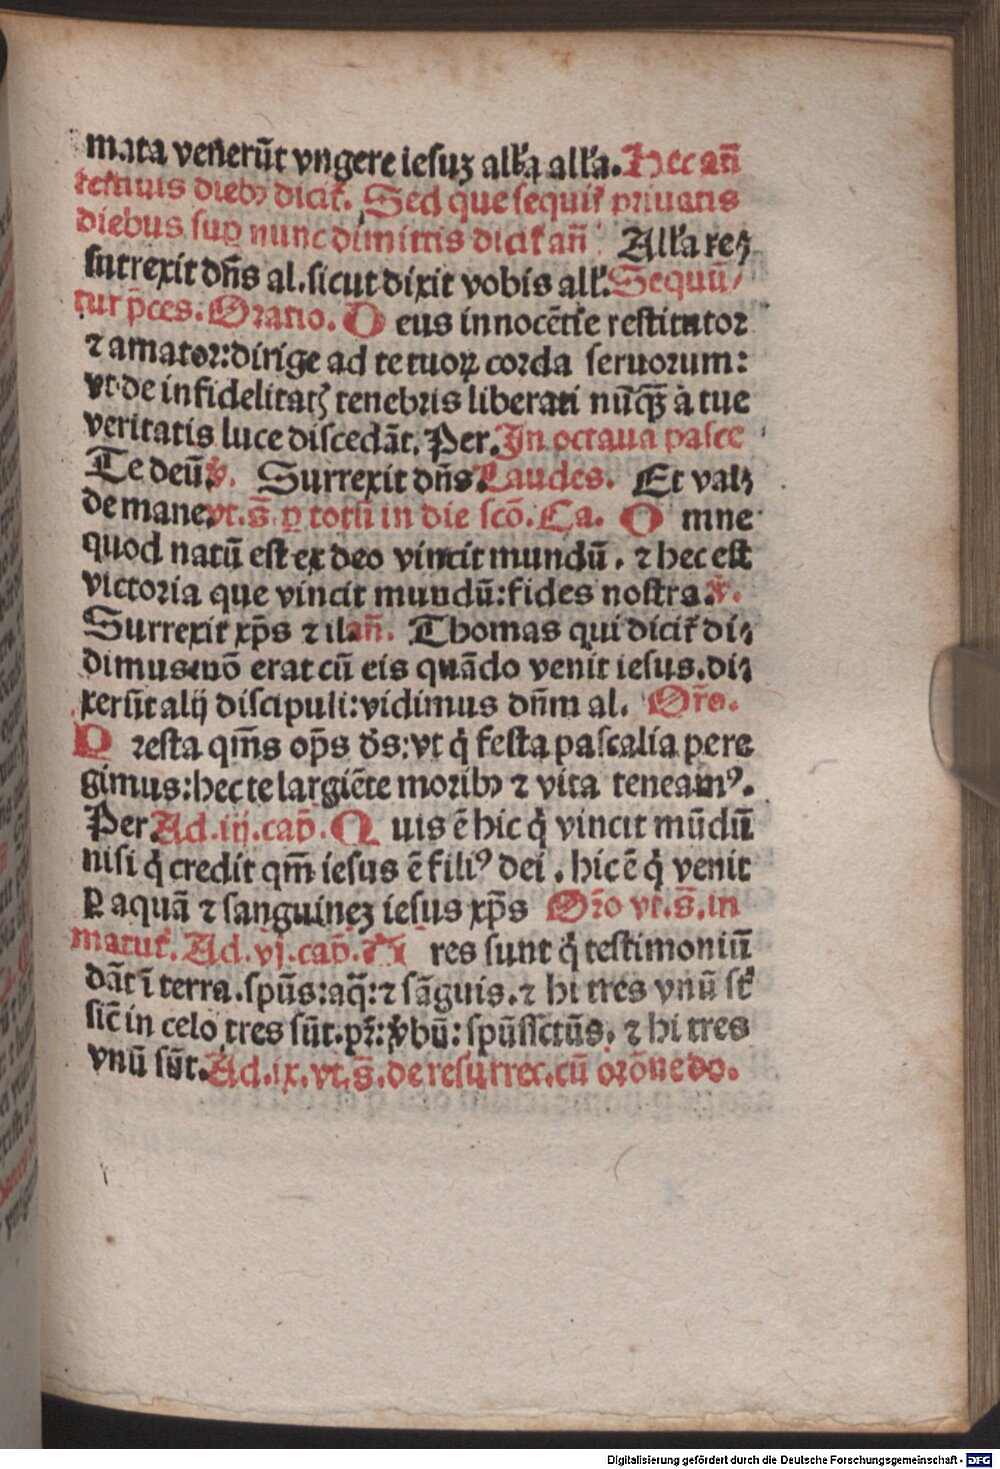 mata venerūt vngere iesuꝫ all'a all'a. Hec an̄
festiuis diebꝰ dicit᷑. Sed que sequit᷑ priuatis
diebus suꝑ nunc dimittis dicit᷑ an̄ All'a re⸗
surrexit dn̄s al. sicut dixit vobis all'. Sequū/
tur p̄ces. Oratio. D eus innocētie restitutor
⁊ amator: dirige ad te tuoꝝ corda seruorum:
vt de infidelitatꝭ tenebris liberati nūꝗꝫ à tue
veritatis luce discedāt. Per. In octaua pasce
Te deū ℣. Surrexit dn̄s Laudes. Et val⸗
de mane. vt. s̄. ꝑ totū in die scō. Ca. O mne
quod natū est ex deo vincit mundū. ⁊ hec est
victoria que vincit mundū: fides nostra. ℣.
Surrexit xp̄s ⁊ il. an̄. Thomas qui dicit᷑ di⸗
dimus nō erat cū eis quādo venit iesus. di⸗
xerūt alij discipuli: vidimus dn̄m al. Or̄o.
P resta qm̄s op̄s ds̄: vt ꝗ festa pascalia pere
gimus: hec te largiēte moribꝰ ⁊ vita teneamꝰ.
Per. Ad. iij. cap̄. Q uis ē hic ꝗ vincit mūdū
nisi ꝗ credit qm̄ iesus ē filiꝰ dei. hic ē ꝗ venit
ꝑ aquā ⁊ sanguineꝫ iesus xp̄s Or̄o vt. s̄. in
matut᷑. Ad. vj. cap̄. T res sunt ꝗ testimoniū
dāt ī terra. spūs: aq̄: ⁊ sāguis. ⁊ hi tres vnū st̄
sic̄ in celo tres sūt. pr̄: v̄bū: spūssctūs. ⁊ hi tres
vnū sūt. Ad. ix. vt. s̄. de resurrec. cū orōne do.
Digitalisierung gefördert durch die Deutsche Forschungsgemeinschaft - DFG